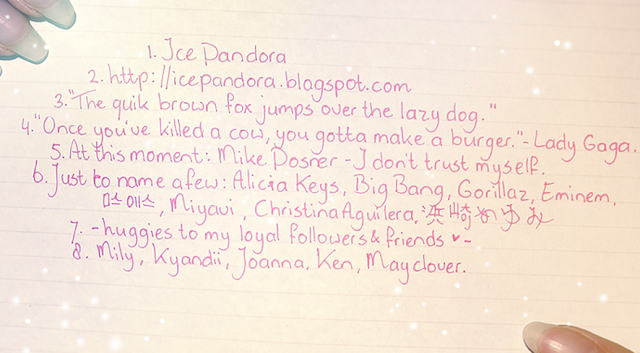 1. Ice Pandora
2. http://icepandora.blogspot.com
3. "The quik brown fox jumps over the lazy dog."
4. "Once you've killed a cow, you gotta make a burger." - Lady Gaga.
5. At this moment: Mike Posner - I don't trust myself.
6. Just to name a few: Alicia Keys, Big Bang, Gorillaz, Eminem,
미스에스, Miyavi, Christina Aguilera, 浜崎あゆみ
7. -huggies to my loyal followers & friends ♥-
8. Mily, Kyandii, Joanna, Ken, Mayclover.